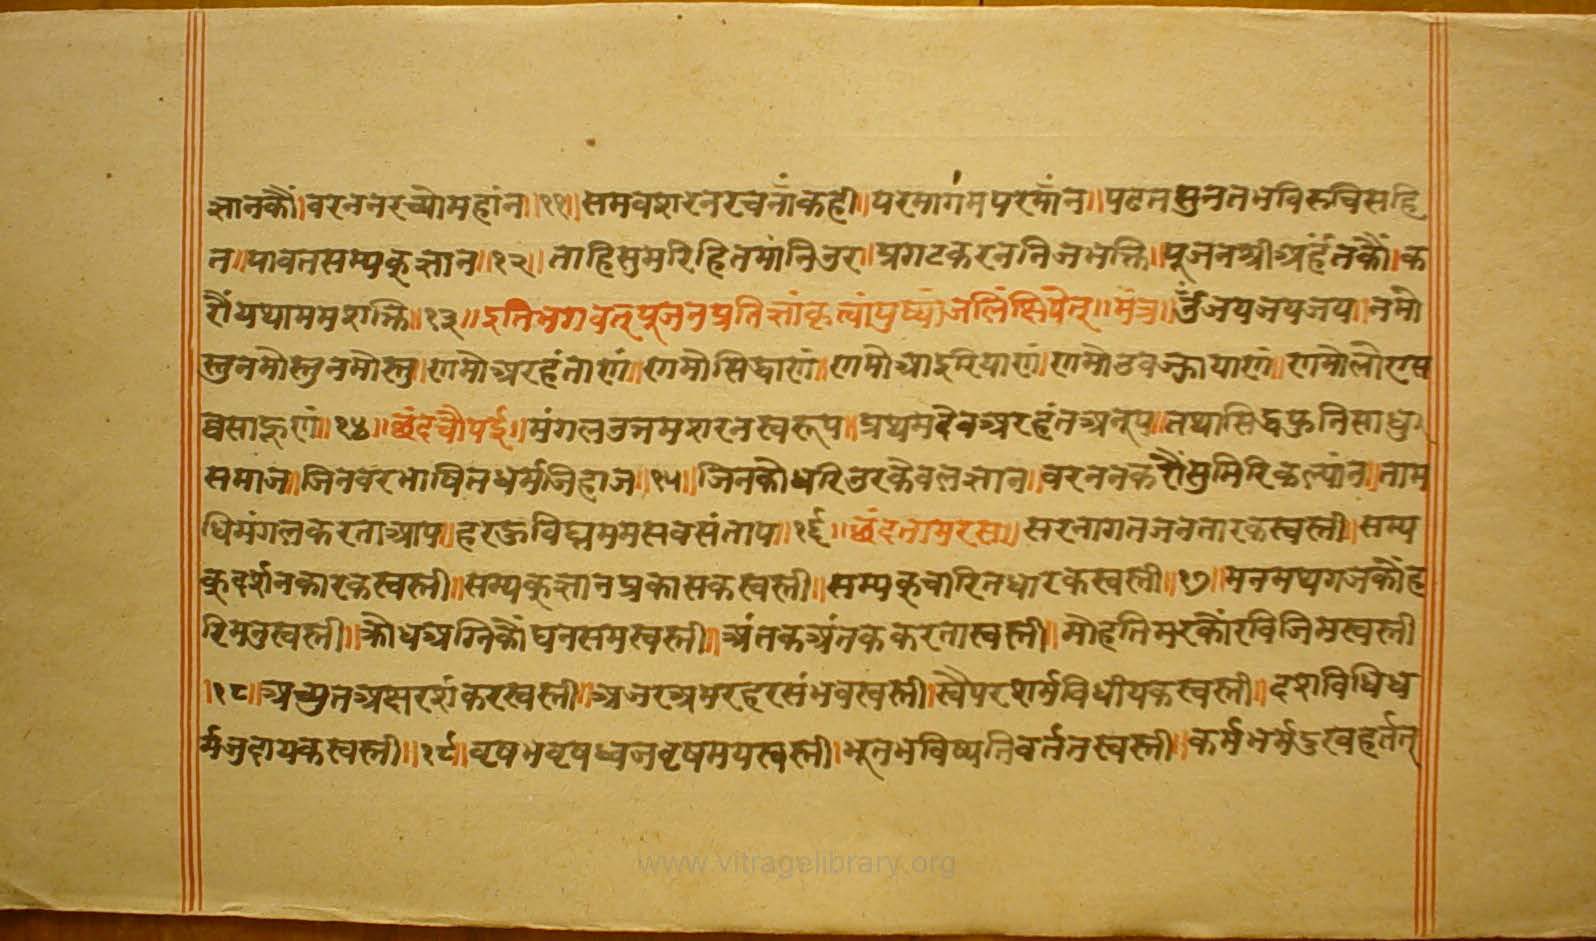 ज्ञानकौं।वरननरच्योमहांन॥११॥समवशरनरचनांकही॥परमागंमपरमांन॥पढतसुनतभविरुचिसहि
त॥पावतसम्यकूज्ञान॥१२॥ताहिसुमरिहितमांनिउर॥प्रगटकरननिजभक्ति॥पूजनश्रीअर्हंतकौं।क
रौंयथाममशक्ति॥१३॥इतिभगवत्पूजनप्रतिज्ञांकृत्वांपुष्पांजलिंक्षिपेत्॥मंत्र॥ॐजयजयजय॥नमो
स्तुनमोस्तुनमोस्तु॥णमोअरहंताणं॥णमोसिद्धाणं॥णमोआइरियाणं॥णमोउवज्झायाणं॥णमोलोएस
व्वसाहूणं॥१४॥छंदचौपई॥मंगलउत्तमशरनस्वरूप॥प्रथमदेवअरहंतअनूप॥तथासिद्धफुनिसाधु
समाज॥जिनवरभाषितधर्मजिहाज॥१५॥जिनकौधरिउरकेवलज्ञान॥वरननकरौंसुमिरिकल्यांन॥ताम
धिमंगलकरताआप॥हरऊविघ्नममसवसंताप॥१६॥छंदतामरस॥सरनागतजनतारकस्वस्ती॥सम्य
कूदर्शनकारकस्वस्ती॥सम्यकूज्ञानप्रकासकस्वस्ती॥सम्यकूचारितधारकस्वस्ती॥१७॥मनमथगजकौंह
रिमुउस्वस्ती॥क्रोधअग्निकौंघनसमस्वस्ती॥अंतकअंतककरतास्वस्ती॥मोहतिमरकौंरविजिमस्वस्ती
॥१८॥अच्युतअक्षरशंकरस्वस्ती॥अजरअमरहरसंभवस्वस्ती॥स्वैपरशर्मविधायकस्वस्ती॥दशविधिध
र्मजुदायकस्वस्ती॥१९॥वृषभवृषध्वजवृषमयस्वस्ती॥भूतभविष्यतिवर्तनस्वस्ती॥कर्मभर्मदुखहर्तन्
www.vitragelibrary.org